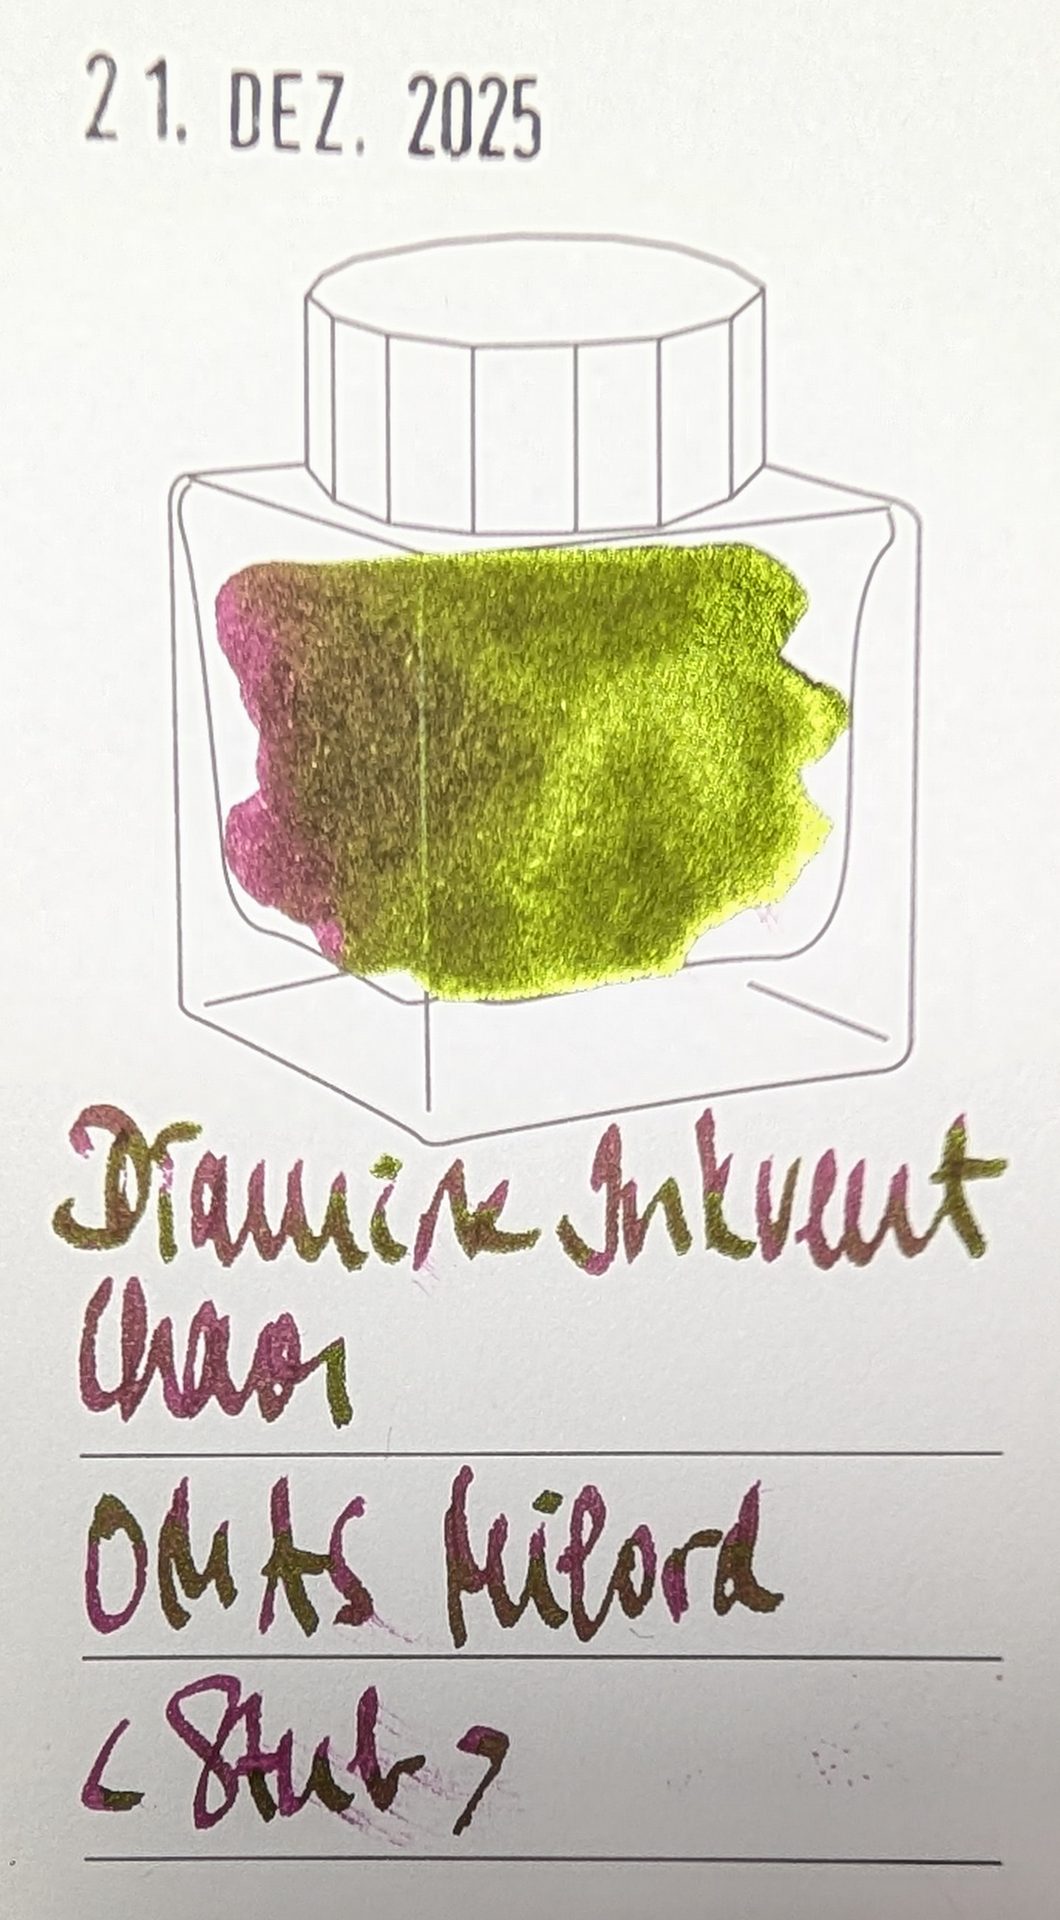 21. DEZ. 2025
Diamine Inkvent
Chaos
OMAS Milord
<Stub>